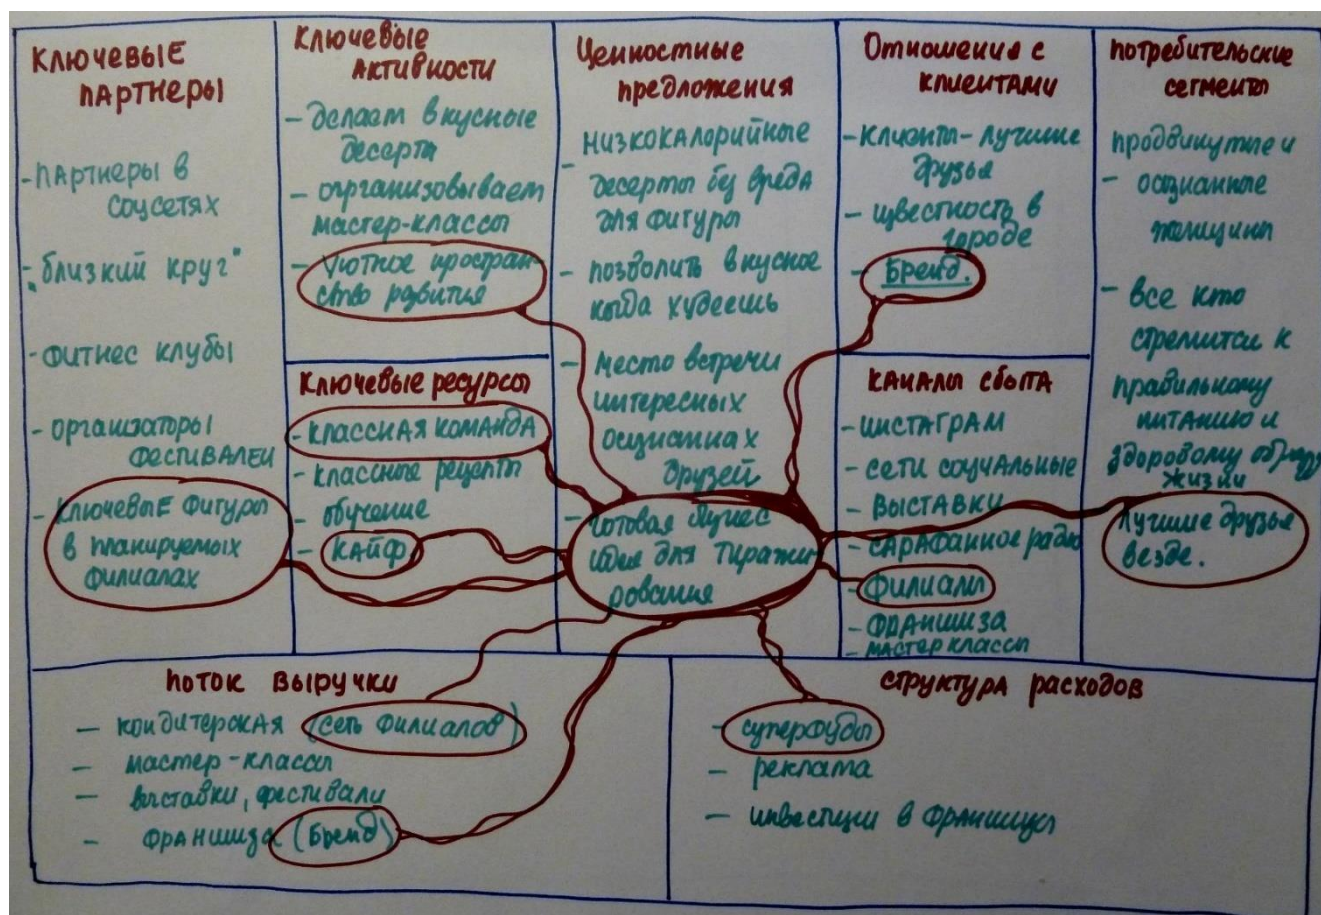 Ключевые
партнеры
- партнеры в
соцсетях
- "близкий круг"
- фитнес клубы
- организаторы
фестивалей
- ключевые фигуры
в планируемых
филиалах
Ключевые
активности
- делаем вкусные
десерты
- организовываем
мастер-классы
- уютное простран-
ство развития
Ключевые ресурсы
- классная команда
- классные рецепты
- обучение
- кайф
Ценностные
предложения
- низкокалорийные
десерты без вреда
для фигуры
- позволить вкусное
когда худеешь
- место встречи
интересных
осознанных
друзей
- готовая бизнес
идея для тиражи
рования
Отношения с
клиентами
- клиенты - лучшие
друзья
- известность в
городе
- Бренд.
каналы сбыта
- инстаграм
- сети социальные
- выставки
- сарафанное радио
- филиалы
- франшиза
- мастер классы
потребительские
сегменты
- продвинутые и
осознанные
женщины
- все кто
стремится к
правильному
питанию и
здоровому образу
жизни
Лучшие друзья
везде.
поток выручки
- кондитерская (сеть филиалов)
- мастер-классы
- выставки, фестивали
- франшиза (Бренд)
структура расходов
- суперфуды
- реклама
- инвестиции в франшизы